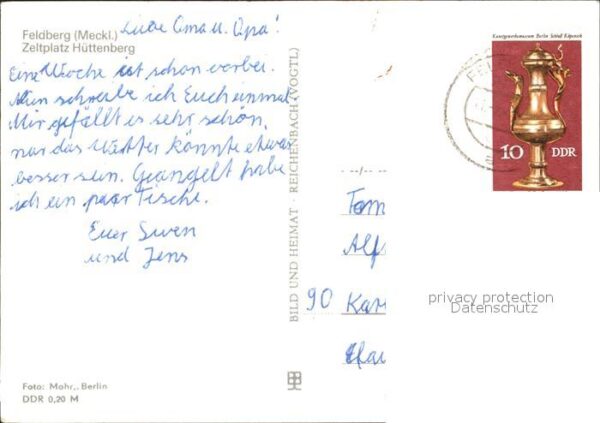 Feldberg (Meckl.)
Zeltplatz Hüttenberg
Liebe Oma u. Opa!
Eine Woche ist schon vorbei.
Nun schreibe ich Euch einmal.
Mir gefällt es sehr schön,
nur das Wetter könnte etwas
besser sein. Geangelt habe
ich ein paar Fische.
Euer Swen
und Jens
Foto: Mohr,, Berlin
DDR 0,20 M
BILD UND HEIMAT · REICHENBACH (VOGTL)
Kunstgewerbemuseum Berlin Schloß Köpenick
10 DDR
Fam
Alf
90 Kar
privacy protection
Datenschutz